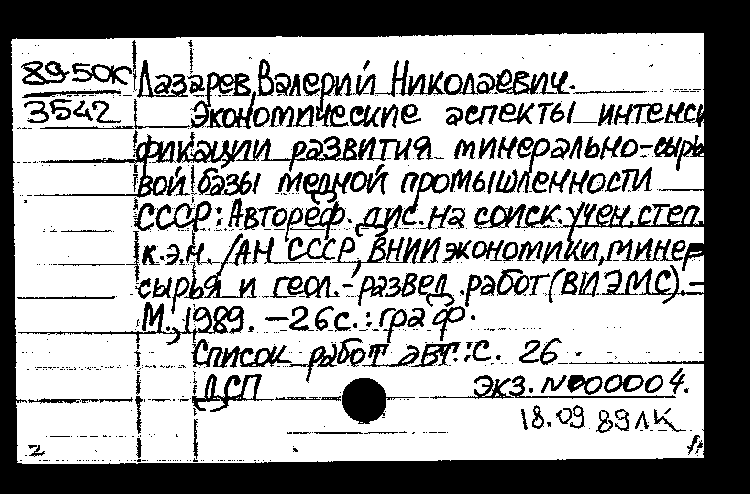 89-50К Лазарев, Валерий Николаевич.
3542 Экономические аспекты интенси
фикации развития минерально-сырь
вой базы медной промышленности
СССР: Автореф. дис. на соиск. учен. степ.
к.э.н. /АН СССР, ВНИИ экономики, минер
сырья и геол.-развед. работ (ВИЭМС).-
М., 1989. - 26с.: граф.
Список работ авт.: С. 26.
ДСП экз. №00004.
18.09 89 ЛК
2